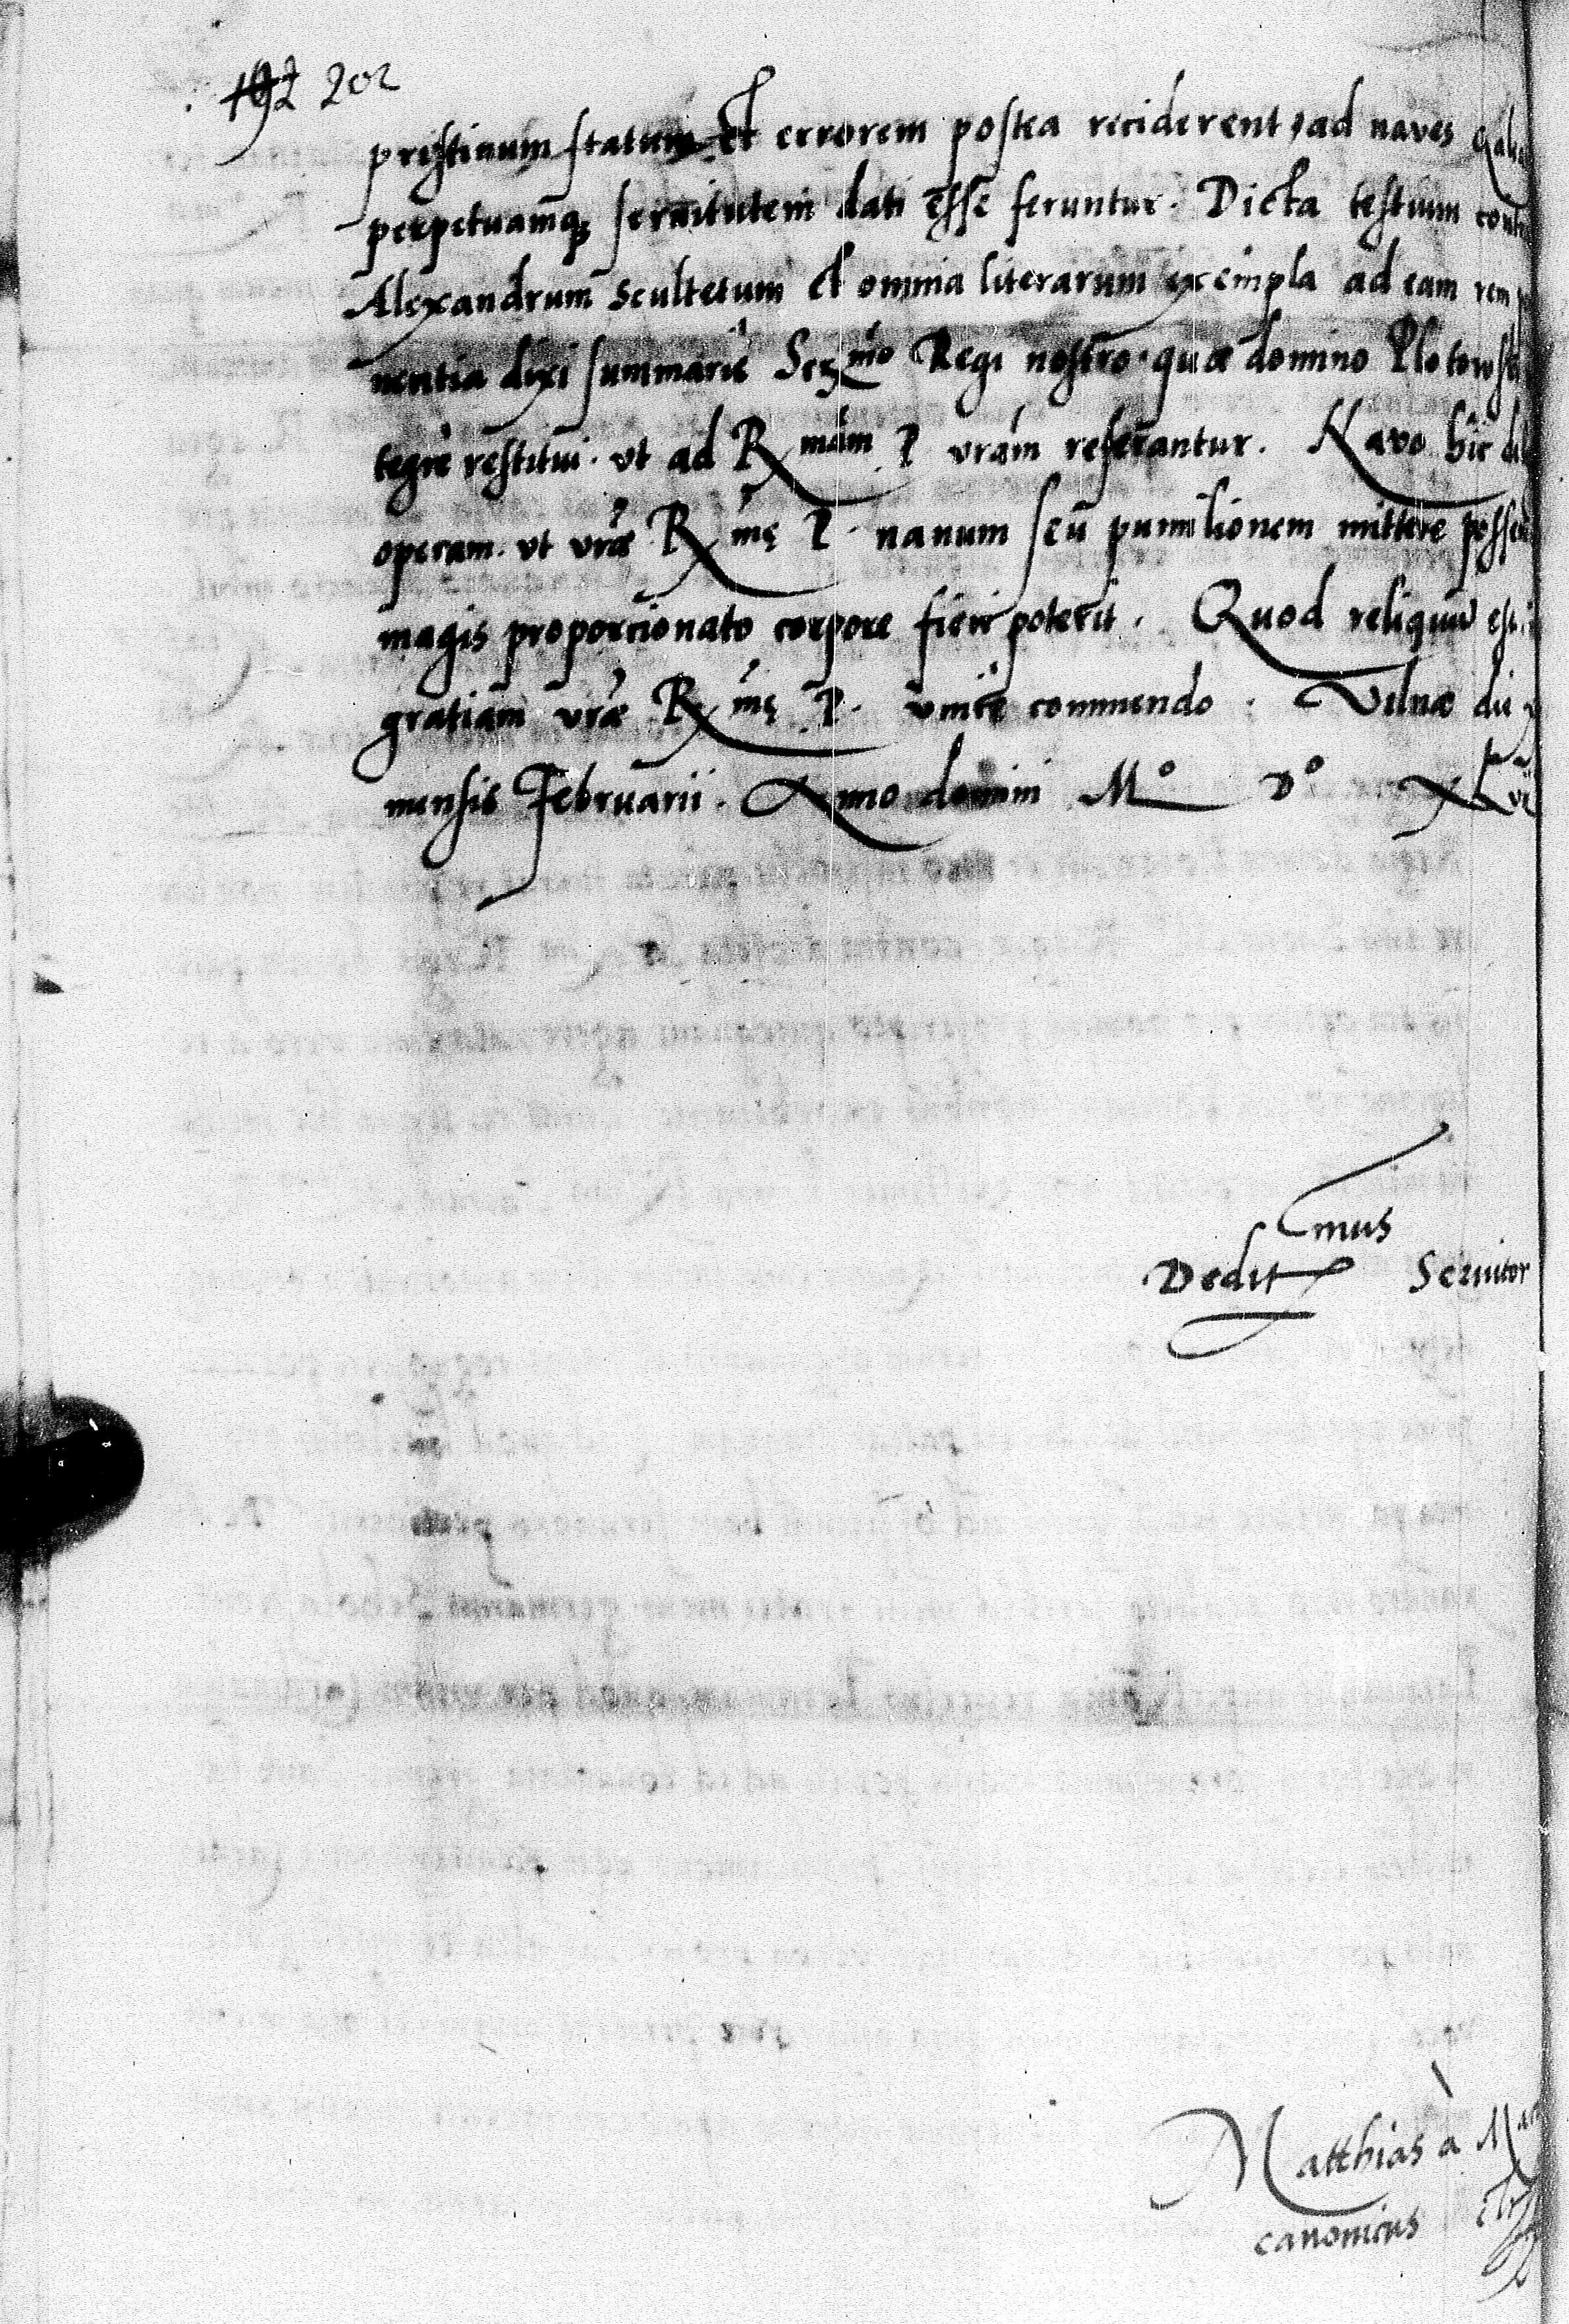 192 202
pristinum statum et errorem postea reciderent, ad naves
perpetuamq; servitutem dati esse feruntur. Dicta testium
Alexandrum Scultetum et omnia literarum exempla ad eam rem
nentia dixi summarie Ser^mo Regi nostro. quae domino
tegre restitui. vt ad R^mam P vram referantur. Navo hic
operam. vt vrae R^mę P. nanum seu pumilionem mittere
magis proporcionato corpore fieri poterit. Quod reliquum est
gratiam vrae R^mę P. vnice commendo. Vilnae
mensis Februarii. Anno domini M° D°
Dedit^mus Servitor
Matthias à
canonicus